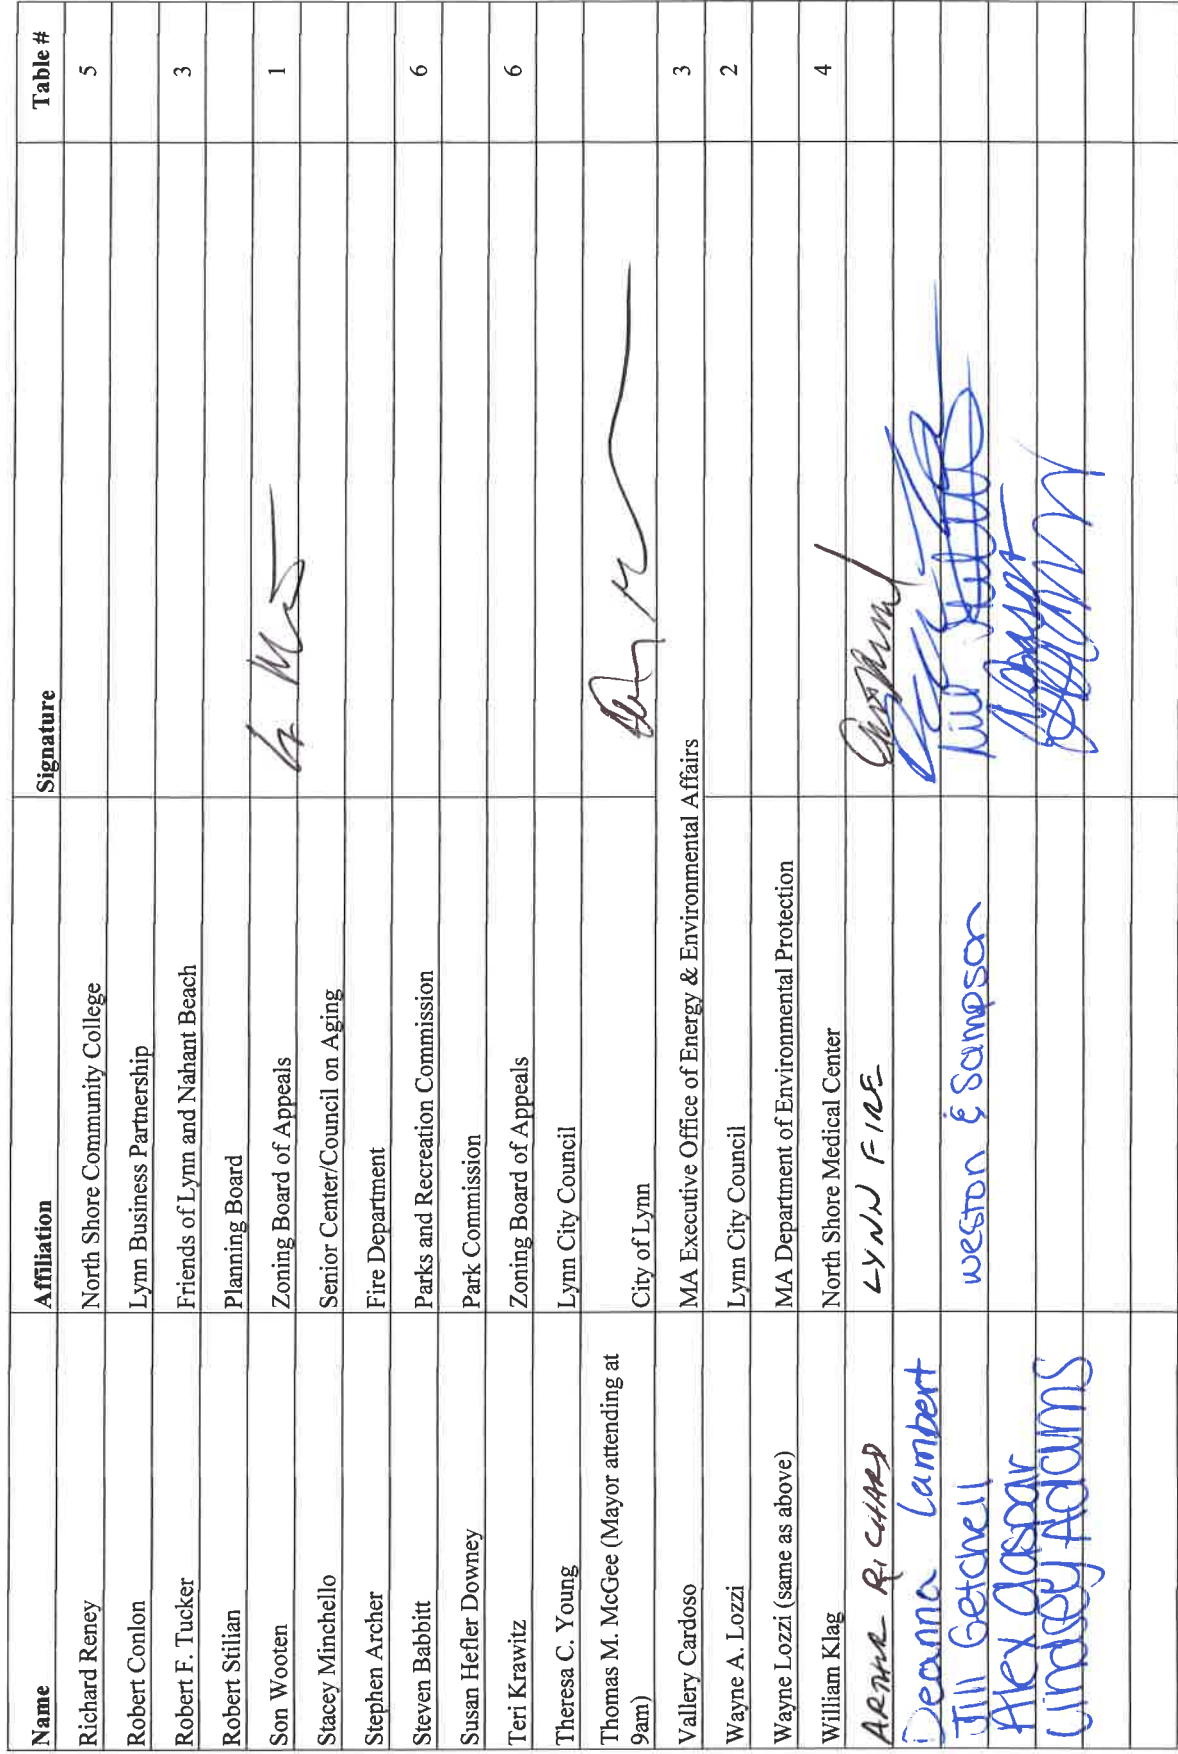 Name Affiliation Signature Table #
Richard Reney North Shore Community College 5
Robert Conlon Lynn Business Partnership
Robert F. Tucker Friends of Lynn and Nahant Beach 3
Robert Stilian Planning Board
Son Wooten Zoning Board of Appeals 1
Stacey Minchello Senior Center/Council on Aging
Stephen Archer Fire Department
Steven Babbitt Parks and Recreation Commission 6
Susan Hefler Downey Park Commission
Teri Krawitz Zoning Board of Appeals 6
Theresa C. Young Lynn City Council
Thomas M. McGee (Mayor attending at
9am) City of Lynn
Vallery Cardoso MA Executive Office of Energy & Environmental Affairs 3
Wayne A. Lozzi Lynn City Council 2
Wayne Lozzi (same as above) MA Department of Environmental Protection
William Klag North Shore Medical Center 4
ARTHUR RICHARD LYNN FIRE
Deanna Lambert
Jill Getchell weston & Sampson
Alex Gaspar
Lindsey Adams